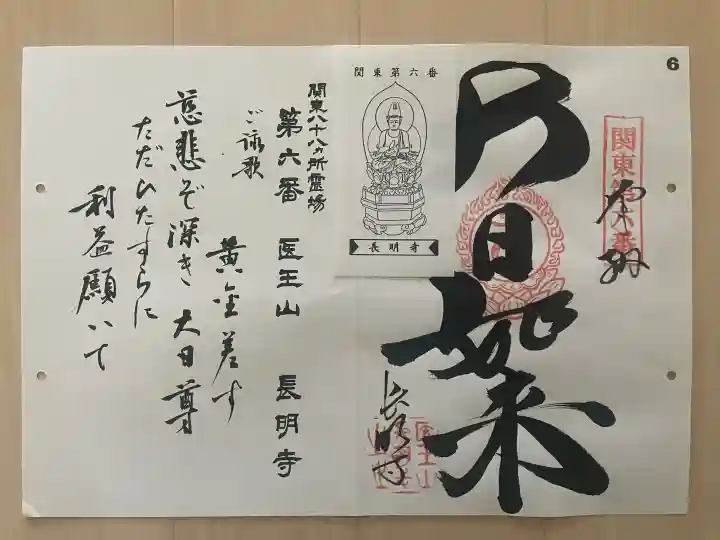 6
関東第六番
奉拝
大日如来
長明寺
医王山
関東第六番
長明寺
関東八十八ヵ所霊場
第六番 医王山 長明寺
ご詠歌
黄金差す
慈悲ぞ深き大日尊
ただひたすらに
利益願いて